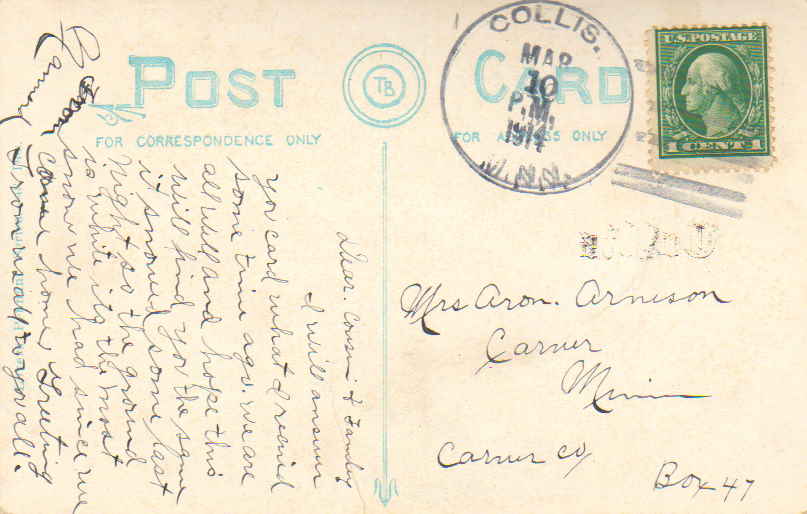 POST CARD
TB
FOR CORRESPONDENCE ONLY
FOR ADDRESS ONLY
COLLIS.
MAR
10
P.M.
1914
MINN.
U.S. POSTAGE
1 CENT 1
Dear. Cousin & Family
I will answer
you card what I recived
some time ago. we are
all well and hope this
will find you the same
it snowed some last
night so the ground
is white its the most
snow we had since we
came home, Greeting
from us all to you all.
Mrs Aron. Arneson
Carver
Minn
Carver Co,
Box 47